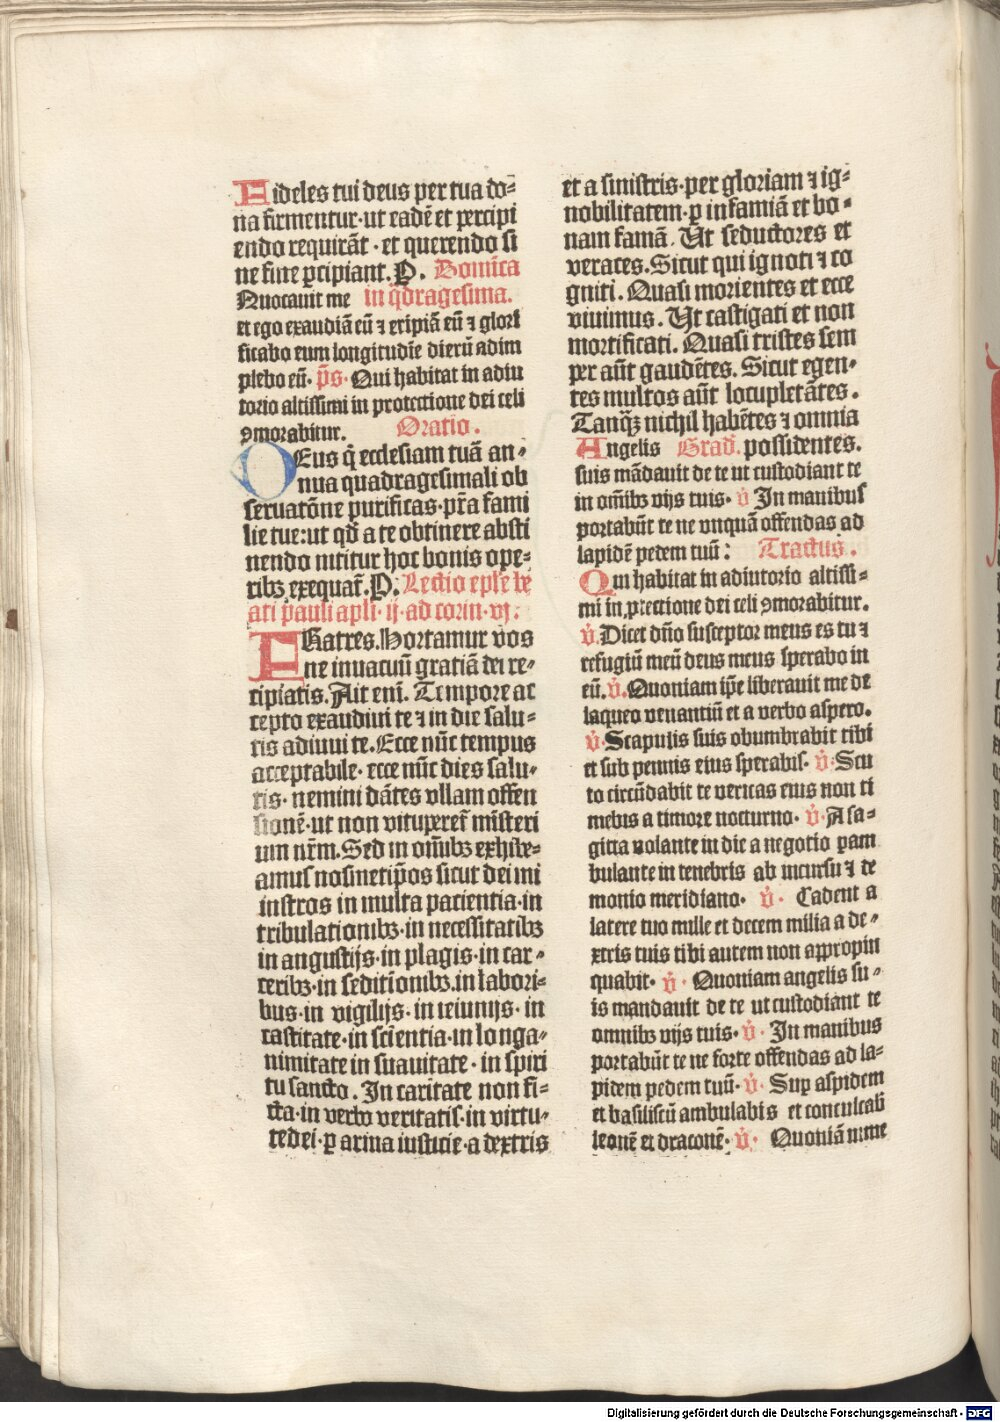 Fideles tui deus per tua do⸗
na firmentur·ut eadē et percipi
endo requirāt·et querendo si
ne fine ꝑcipiant.P. Domīca
Nuocauit me in q̄dragesima.
et ego exaudiā eū ⁊ eripiā eū ⁊ glori
ficabo eum longitudīe dierū adim
plebo eū. p̄s· Qui habitat in adiu
torio altissimi in protectione dei celi
ꝯmorabitur. Oratio.
DEus q̄ ecclesiam tuā an⸗
nua quadragesimali ob
seruatōne purificas·pr̄a fami
lie tue:ut qd̄ a te obtinere absti
nendo nititur hoc bonis ope⸗
ribꝫ exequat̄.P. Lectio ep̄le be
ati pauli apl̄i·ij·ad corin·vj·
FRatres.Hortamur vos
ne inuacuū gratiā dei re⸗
cipiatis. Ait enī. Tempore ac
cepto exaudiui te ⁊ in die salu⸗
tis adiuui te. Ecce nūc tempus
acceptabile·ecce nūc dies salu⸗
tis·nemini dātes vllam offen
sionē·ut non vituperet̄ mīsteri
um nr̄m. Sed in om̄ibꝫ exhibe⸗
amus nosmetip̄os sicut dei mi
nistros in multa pacientia·in
tribulationibꝫ·in necessitatibꝫ
in angustijs·in plagis·in car⸗
ceribꝫ·in seditiōnibꝫ.in labori⸗
bus·in vigilijs·in ieiunijs·in
castitate·in sciēntia·in longa⸗
nimitate in suauitate·in spiri
tu sancto. In caritate non fi⸗
cta·in verbo veritatis·in virtu⸗
te dei·ꝑ arma iusticie·a dextris
et a sinistris·per gloriam ⁊ ig⸗
nobilitatem·ꝑ infamiā et bo⸗
nam famā. Ut seductores et
veraces. Sicut qui ignoti ⁊ co
gniti. Quasi morientes et ecce
viuimus. Ut castigati et non
mortificati. Quasi tristes sem
per aūt gaudētes. Sicut egen⸗
tes multos aūt locupletātes.
Tanqꝫ nichil habētes ⁊ omnia
Angelis Grad. possidentes.
suis mādauit de te ut custodiant te
in om̄ibꝫ vijs tuis· v̇ In manibus
portabūt te ne vnquā offendas ad
lapidē pedem tuū: Tractus.
Qui habitat in adiutorio altissi⸗
mi in ꝓtectione dei celi ꝯmorabitur.
v̇. Dicet dn̄o susceptor meus es tu ⁊
refugiū meū deus meus sperabo in
eū. v̇. Quoniam ip̄e liberauit me de
laqueo venantiū et a verbo aspero.
v̇· Scapulis suis obumbrabit tibi
et sub pennis eius sperabis· v̇· Scu
to circūdabit te veritas eius non ti
mebis a timore nocturno· v̇· A sa⸗
gitta volante in die a negotio ꝑam
bulante in tenebris ab incursu ⁊ de
monio meridiano· v̇· Cadent a
latere tuo mille et decem milia a de⸗
xtris tuis tibi autem non appropin
quabit· v̇· Quoniam angelis su⸗
is mandauit de te ut custodiant te
omnibꝫ vijs tuis· v̇· In manibus
portabūt te ne forte offendas ad la⸗
pidem pedem tuū· v̇· Sup aspidem
et basiliscū ambulabis et conculcab̄
leonē et draconē· v̇· Quoniā in me
Digitalisierung gefördert durch die Deutsche Forschungsgemeinschaft - DFG